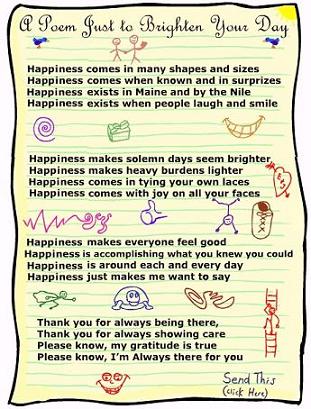 A Poem Just to Brighten Your Day
Happiness comes in many shapes and sizes
Happiness comes when known and in surprizes
Happiness exists in Maine and by the Nile
Happiness exists when people laugh and smile
Happiness makes solemn days seem brighter
Happiness makes heavy burdens lighter
Happiness comes in tying your own laces
Happiness comes with joy on all your faces
Happiness makes everyone feel good
Happiness is accomplishing what you knew you could
Happiness is around each and every day
Happiness just makes me want to say
Thank you for always being there,
Thank you for always showing care
Please know, my gratitude is true
Please know, I'm Always there for you
Send This
(click Here)